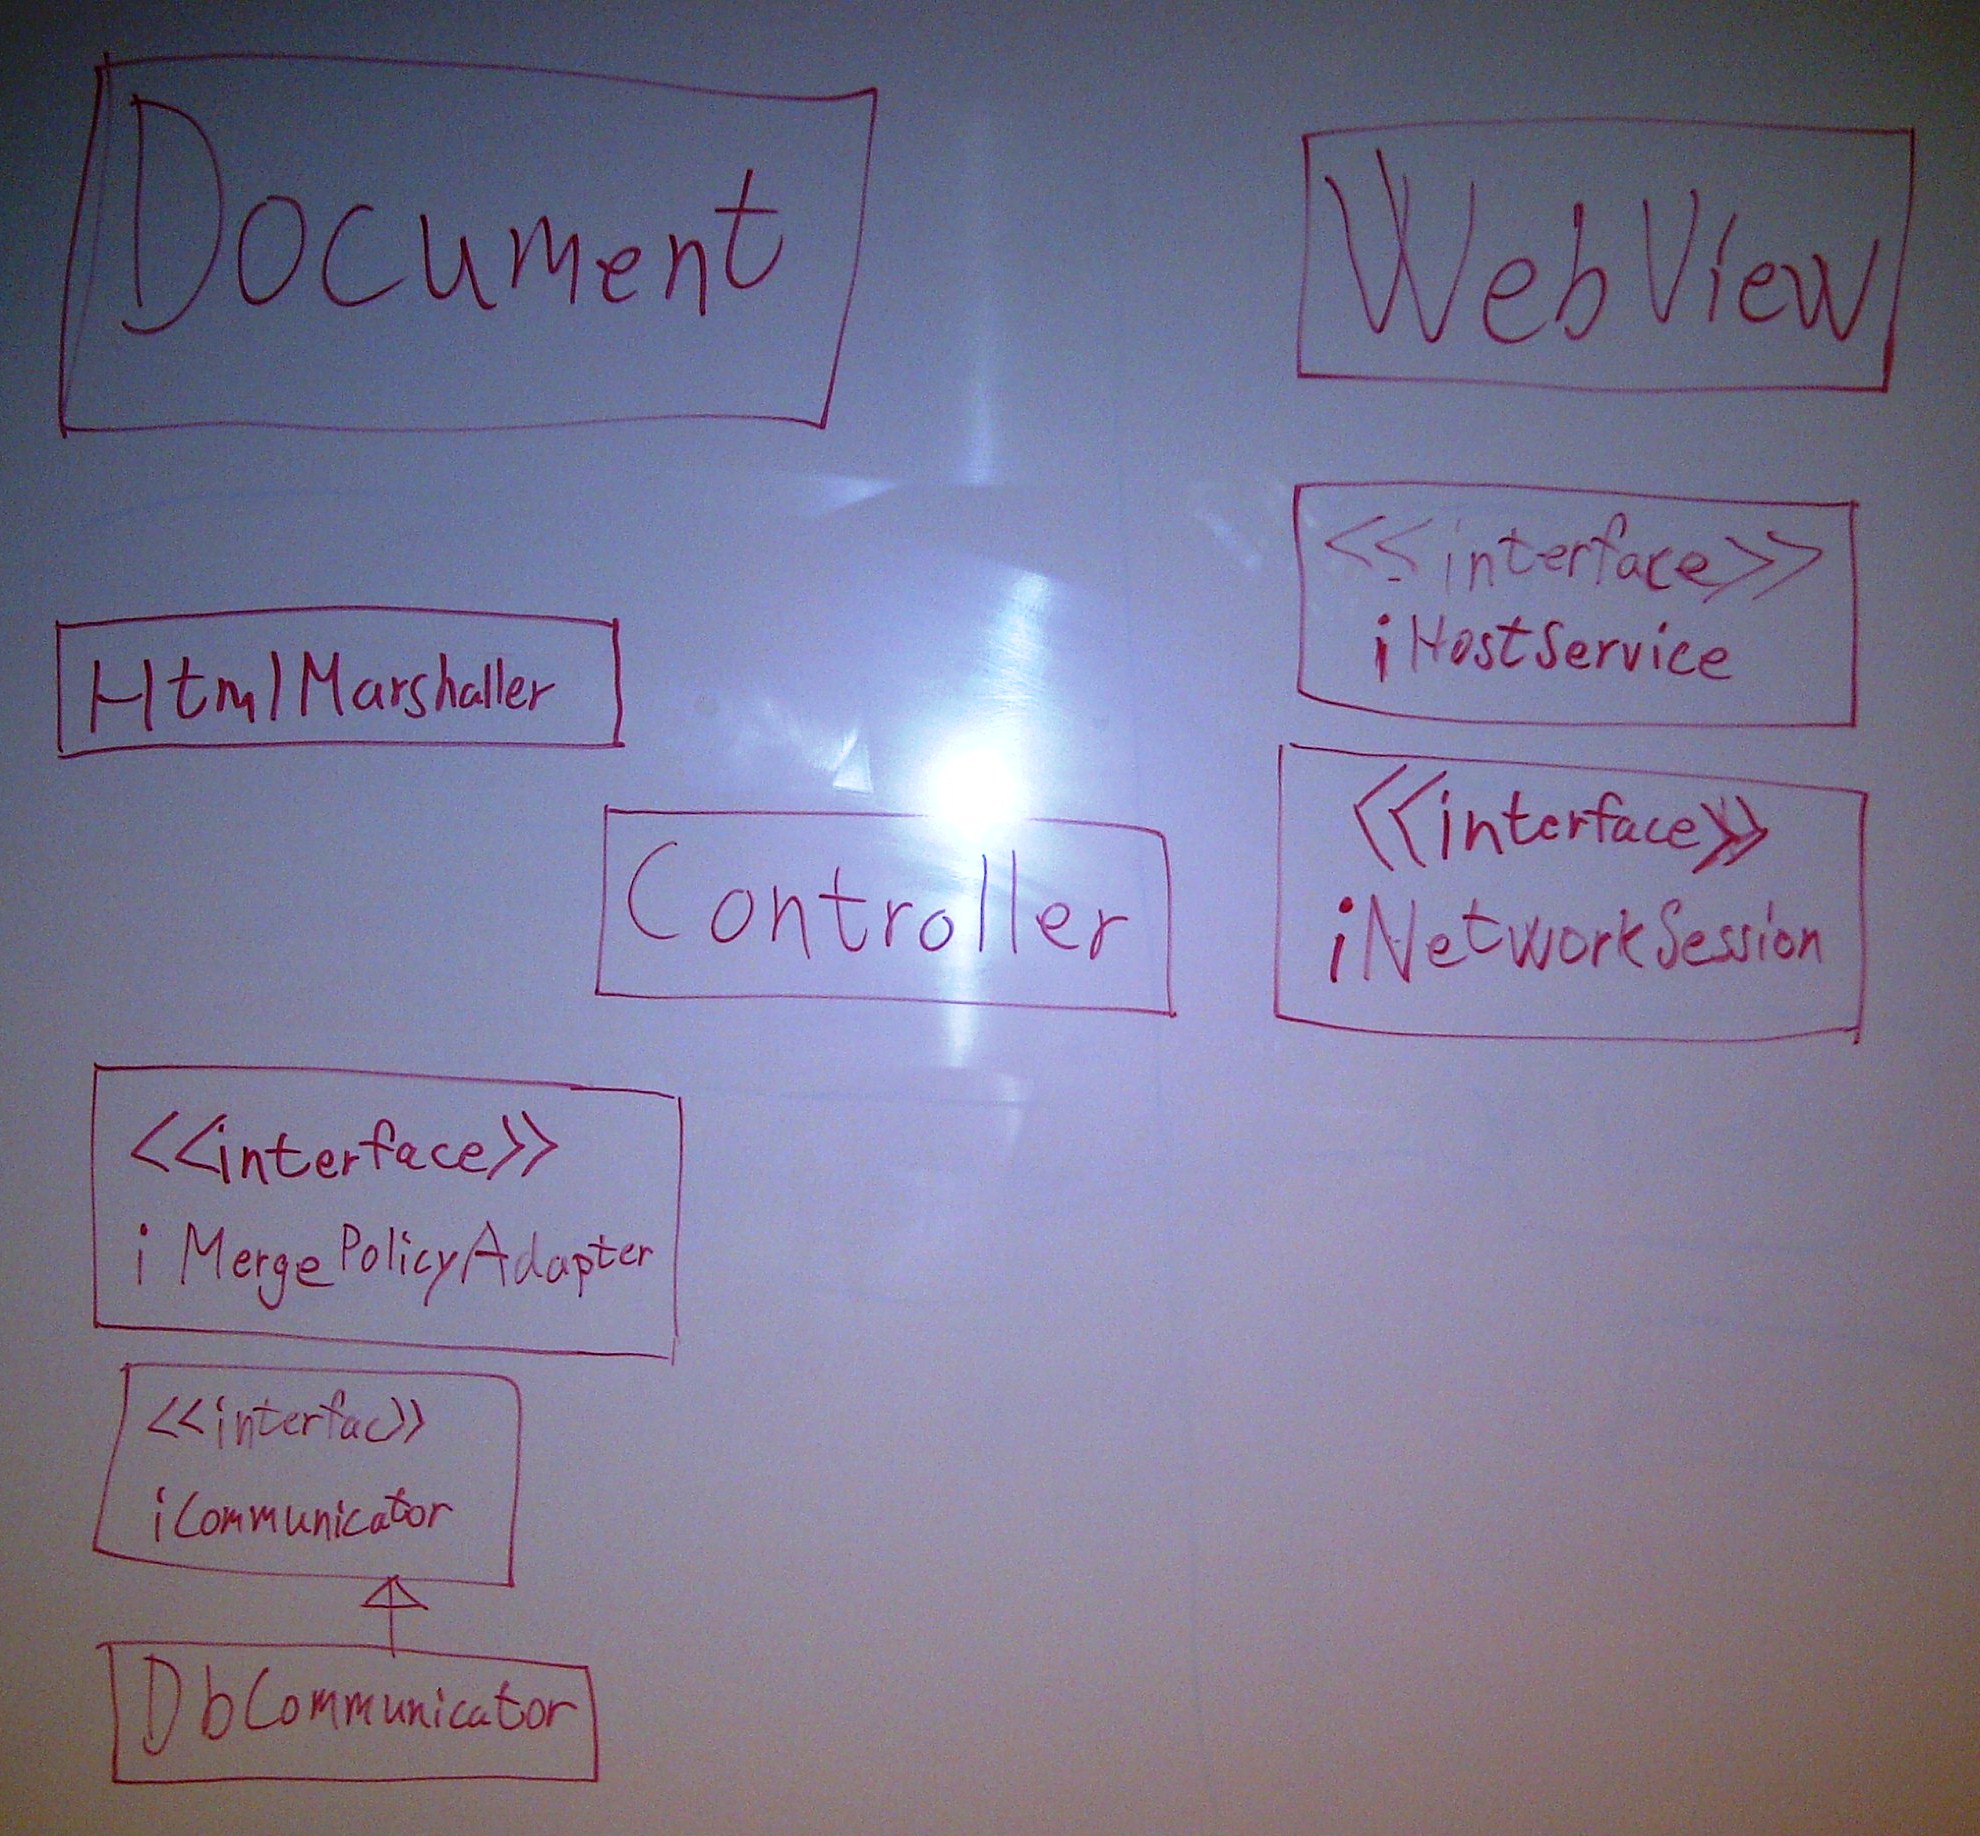 Document
WebView
<<interface>>
iHostService
HtmlMarshaller
<<interface>>
iNetworkSession
Controller
<<interface>>
iMergePolicyAdapter
<<interfac>>
iCommunicator
DbCommunicator